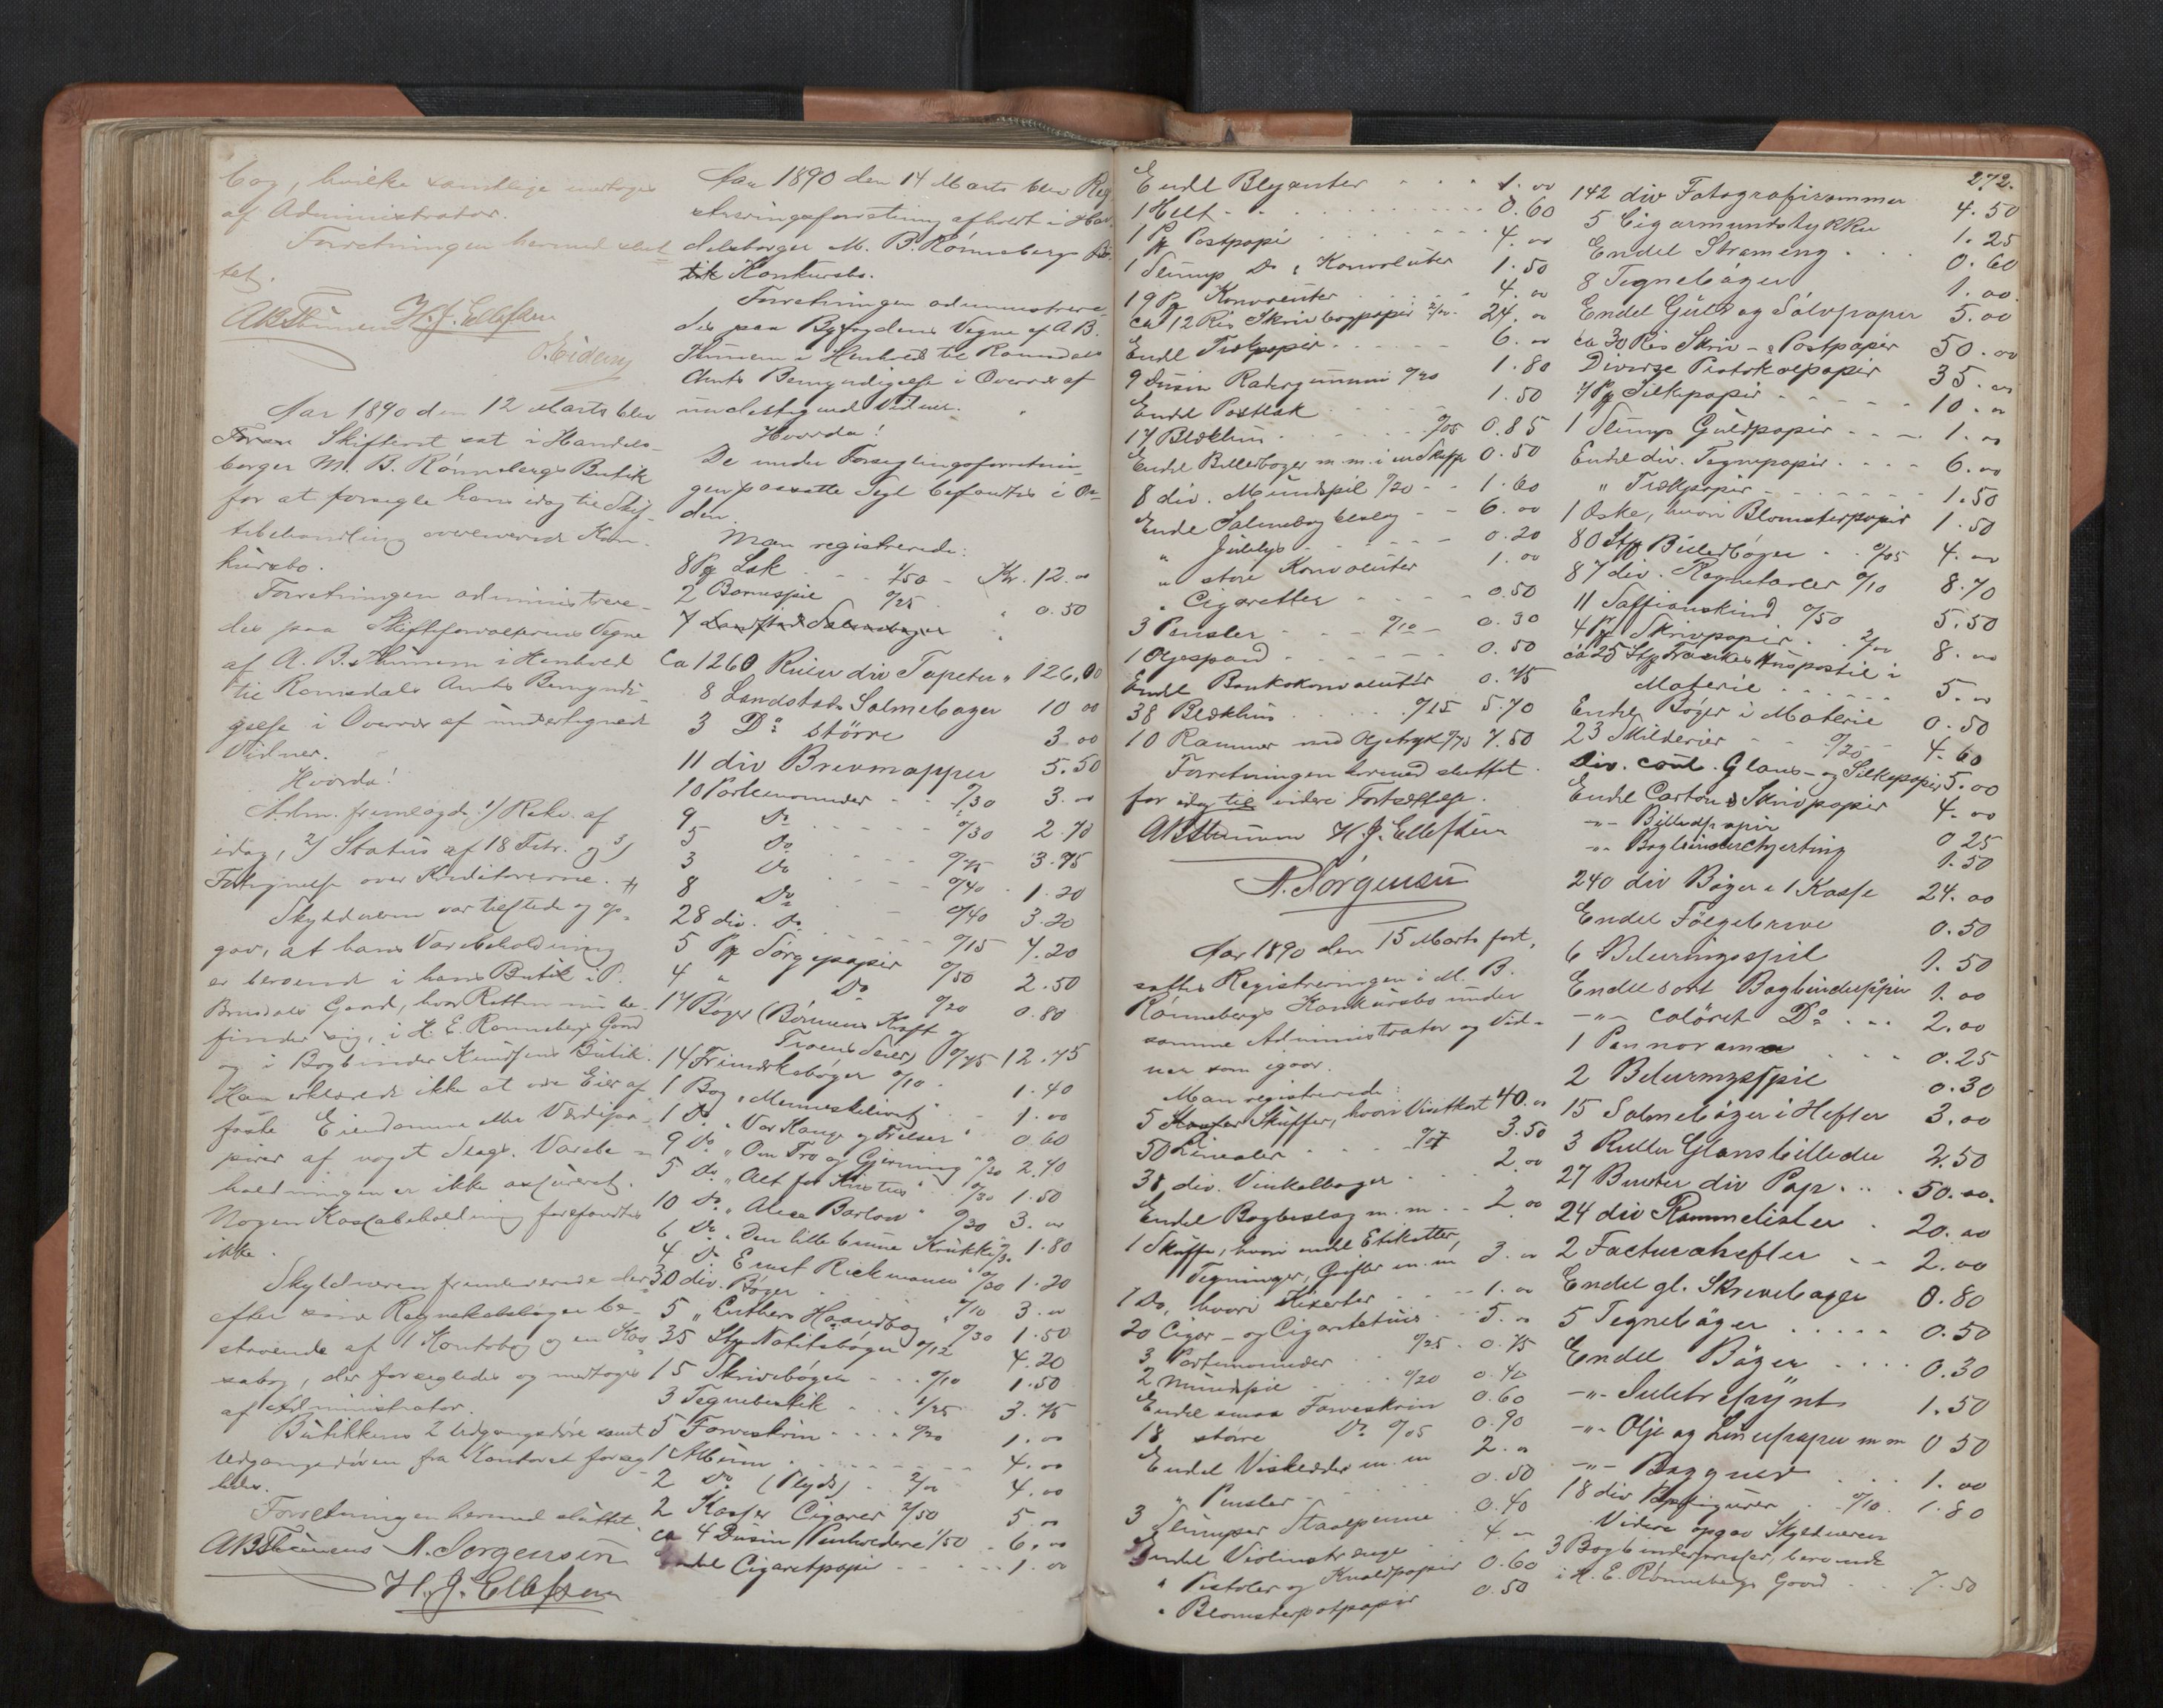 bog, hvilke samtlige modtoges
af Administrator.
Forretningen hermed slut
tet.
ABThūmem H. J. Ellefsen
O. Eideng
Aar 1890 den 12 Marts blev
Skifteret sat i Handels-
borger M. B. Rønnebergs Butik
for at forsegle hans idag til Skif-
tebehandling overleverede Kon-
kursbo.
Forretningen administrere-
des paa Skifteforvalterens Vegne
af A. B. Thūmem i Henhold
til Romsdals Amts Bemyndi-
gelse i Overvær af undertegnede
Vidner.
Hvorda!
Adm. fremlagde 1) Rekv. af
idag, 2) Status af 18 Febr. og 3)
Fortegnelse over Kreditorerne.
Skyldneren var tilstede og op-
gav, at hans Varebeholdning
er beroende i hans Butik i P.
Brusdals Gaard, hvor Retten nu be-
finder sig, i H. E. Rønnebergs Gaard
og i Bogbinder Knudsens Butik.
Han erklærede ikke at være Eier af
faste Eiendomme eller Værdipa-
pirer af noget Slags. Varebe-
holdningen er ikke assureret.
Nogen Kassabeholdning forefandtes
ikke.
Skyldneren fremleverede der-
efter sine Regnskabsbøger be-
staaende af 1 Kontobog og en Kas-
sabog, der forsegledes og modtoges
af Administrator.
Butikkens 2 Udgangsdøre samt
Udgangsdøren fra Kontoret forseg-
ledes.
Forretningen hermed sluttet.
ABThūmem N. Sørgensen
H. J. Ellefsen
Aar 1890 den 14 Marts blev Reg
istreringsforretning afholdt i Han-
delsborger M. B. Rønnebergs Bu-
tik Konkursbo.
Forretningen administrere-
des paa Byfogdens Vegne af A B.
Thūmem i Henhold til Romsdals
Amts Bemyndigelse i Overvær af
undertegnede Vidner.
Hvorda!
De under Forseglingsforretnin-
gen paasatte Segl befandtes i Or-
den.
Man registrerede:
8 Pg Lak 1/50 Kr. 12.00
2 Børnespil 0/25 " 0.50
7 Landstads Salmebøger "
Ca 1260 Ruller div Tapeter " 126.00
8 Landstads Salmebøger 10 00
3 Do større 3 00
11 div Brevmapper 5.50
10 Portemonnæer 0/30 3.00
9 Do 0/30 2.70
5 Do 0/75 3.75
3 Do 0/40 1.20
8 Do 0/40 3.20
28 div. Do 0/15 4.20
5 Pg Sørgepapir 0/50 2.50
4 " Do 0/20 0.80
17 Bøger (Bønnens Kraft og
Troens Seier) 0/75 12.75
14 Frimærkebøger 0/10 1.40
1 Bog "Menneskelivet" 1.00
1 Do "Vor Konge og Frelser" 0.60
9 Do "Om Tro og Gjerning" 0/30 2.70
5 Do "Alt for Kristus" 0/30 1.50
10 Do "Alice Barlow" 0/30 3.00
6 Do "Den lille brune Krukke" 0/30 1.80
4 Do Ernst Rickmann" 0/30 1.20
30 div. Bøger 0/10 3.00
5 "Luthers Haandbog" 0/30 1.50
35 Stk Notitsbøger 0/12 4.20
15 Skrivebøger 0/10 1.50
3 Tegnebestik 1/25 3.75
5 Farveskrin 0/20 1.00
1 Album 4.00
2 Do (Plyds) 2/00 4.00
2 Kasser Cigarer 2/50 5.00
ca 4 Dusin Penholdere 1/50 6.00
Endel Cigaretpapir 1.00
Endl Blyanter 1.00
1 Helt 0.60
1 Pg Postpapir 4.00
1 Slump Do & Konvoluter 1.50
19 Pg Konvoluter 4.00
ca 12 Ris Skrivbogpapir 2/00 24.00
Endl Trækpapir 6.00
9 Dusin Radergummi 0/20 1.80
Endl Postlak 1.50
17 Blækhus 0/05 0.85
Endel Billedbøger m.m. i en Skuffe 0.50
8 div. Mundspil 0/20 1.60
Endl Salmebogbeslag 6.00
" Julelys 0.20
" store Konvoluter 1.00
" Cigaretter 0.50
3 Pensler 0/10 0.30
1 Øgespand 0.50
Endl Bankokonvoluter 0.75
38 Blækhus 0/15 5.70
10 Rammer med Oljetryk 0/75 7.50
Forretningen hermed sluttet
for idag til videre Fortsættelse.
ABThūmem H. J. Ellefsen
N. Sørgensen
Aar 1890 den 15 Marts fort-
sattes Registreringen i M. B.
Rønnebergs Konkursbo under
samme Administrator og Vid-
ner som igaar.
Man registrerede:
5 Skuffer, hvori Visitkort 40.00
50 Linealer 0/07 3.50
38 div. Vinkelbager 2.00
Endel Bogbeslag m.m. 2 00
1 Skuffe, hvori endel Etiketter,
Tegninger, Grifler m.m 3.00
1 Do, hvori Kixerter 1.00
20 Cigar- og Cigaretetuis 5.00
3 Portemonnæer 0/25 0.75
2 Mundspil 0/20 0.40
Endel smaa Farveskrin 0.60
18 større Do 0/05 0.90
Endel Viskelæder m.m 2.00
" Pensler 0.50
3 Slumper Staalpenne 0.40
Endel Violinstrænge 4.00
" Pistoler og Knaldpapir 0.60
" Blomsterpotpapir 0.50
272.
142 div Fotografirammer 4.50
5 Cigarmundstykker 1.25
Endel Strameng 0.60
8 Tegnebøger 1.00
Endel Guld og Sølvpapir 5.00
ca 30 Ris Skriv- & Postpapir 50.00
Diverse Protokolpapir 35.00
7 Pg Silkepapir 10.00
1 Slump Guldpapir 1.00
Endel div. Tegnepapir 6.00
" Trækpapir 1.50
1 Æske, hvori Blomsterpapir 1.50
80 Stk Billedbøger 0/05 4.00
87 div. Regnetavler 0/10 8.70
11 Saffianskind 0/50 5.50
4 Pk Skrivpapir 2/00 8.00
ca 25 Stk Frankes Huspostil i
Materie 5.00
Endel Bøger i Materie 0.50
23 Skilderier 0/20 4.60
Div. coul. Glans- og Silkepapir 5.00
Endel Carton & Skrivpapir 4.00
-"- Billedpapir 0 25
-"- Bogbinderchjerting 1.50
240 div Bøger i 1 Kasse 24.00
Endel Følgebreve 0.50
6 Beleiringsspil 1.50
Endel sort Bogbinderppir 1.00
-"- coløret Do 2.00
1 Pannorama 0.25
2 Beleiringsspil 0.30
15 Salmebøger i Hefter 3.00
3 Ruller Glansbilleder 2.50
27 Bunter div Pap 50.00
24 div Rammelister 20.00
2 Facturahefter 2.00
Endel gl. Skrivebøger 0.80
5 Tegnebøger 0.50
Endel Bøger 0.30
-"- Juletrepynt 1.50
-"- Olje og Linepapir m m 0 50
-"- Bøgguer 1.00
18 div Papfigurer 0/10 1.80
Videre opgav Skyldneren
3 Bogbinderpresser, beroende
i H. E. Rønnebergs Gaard 7.50